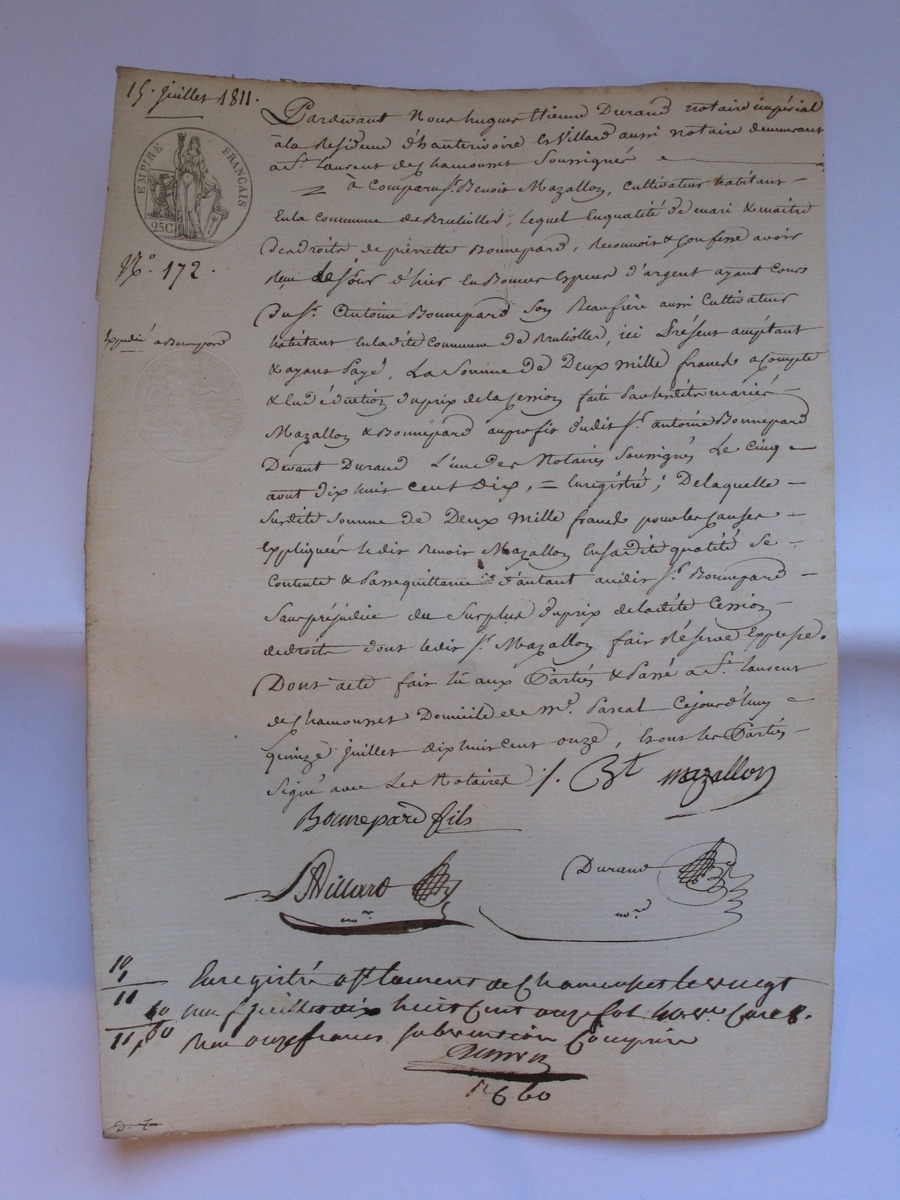 15. juillet 1811.
EMPIRE FRANÇAIS
25C
N° 172.
Expedié a Bonnepard
Pardevant Nous hugues Etienne Durand notaire impérial
à la Residence d'hauterivoire & Villard aussi notaire demeurant
a St. Laurent de Chamousset Soussignés
à Comparu Sr. Benoit Mazallon, cultivateur habitant
En la Commune de Brullolles, lequel En qualité de mari & maitre
des droits de pierrette Bonnepard, Reconnoit & Confesse avoir
Reçu Ce jour d'hier En Bonnes Especes d'argent ayant Cours
Du Sr. Antoine Bonnepard Son Beaufrère aussi Cultivateur
habitant En ladite Commune de Brullolles, ici Présent acceptant
& ayant Payé, La Somme de Deux Mille francs a Compte
& En déduction du prix de la Cession faite Par lesdits mariés
Mazallon & Bonnepard au profit dudit Sr. antoine Bonnepard
Devant Durand L'un des Notaires Soussignés Le Cinq
aout dix huit cent Dix, = Enregistré; De laquelle
Susdite Somme de Deux Mille francs pour les Causes
Expliquées ledit Benoit Mazallon En sadite qualité Se
Contente & Passe quittance d'autant audit Sr. Bonnepard
Sans préjudice du Surplus du prix de ladite Cession
de droits dont ledit Sr. Mazallon fait Réserve Expresse.
Dont acte fait lu aux Parties & Passé a St. laurent
de Chamousset Domicile de Me. Pascal Cejourd'huy
quinze juillet dix huit cent onze, & sont les Parties
Signé avec Les Notaires /. Bt mazallon
Bonnepard fils
Villard
nore
Durand
nore
10
1
11
60
11,60
Enregistré a St laurent de Chamousset le vingt
neuf juillet dix huit Cent onze fol
Reçu onze francs subvention Comprise